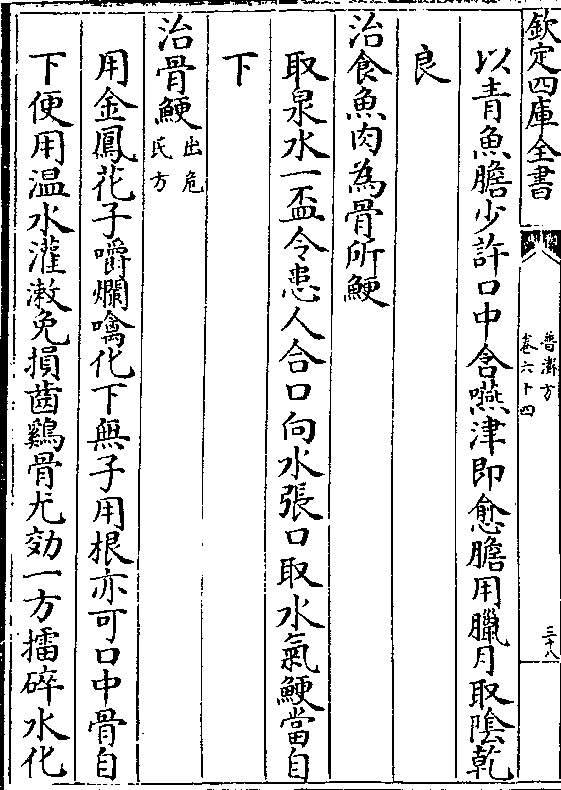 欽定四庫全書
普濟方
卷六十四
三十八
以青魚膽少許口中含嚥津即愈膽用臘月取陰乾
良
治食魚肉為骨所鯁
取泉水一盃令患人合口向水張口取水氣鯁當自
下
治骨鯁出危氏方
用金鳳花子嚼爛噙化下無子用根亦可口中骨自
下便用温水灌漱免損齒鷄骨尤効一方擂碎水化